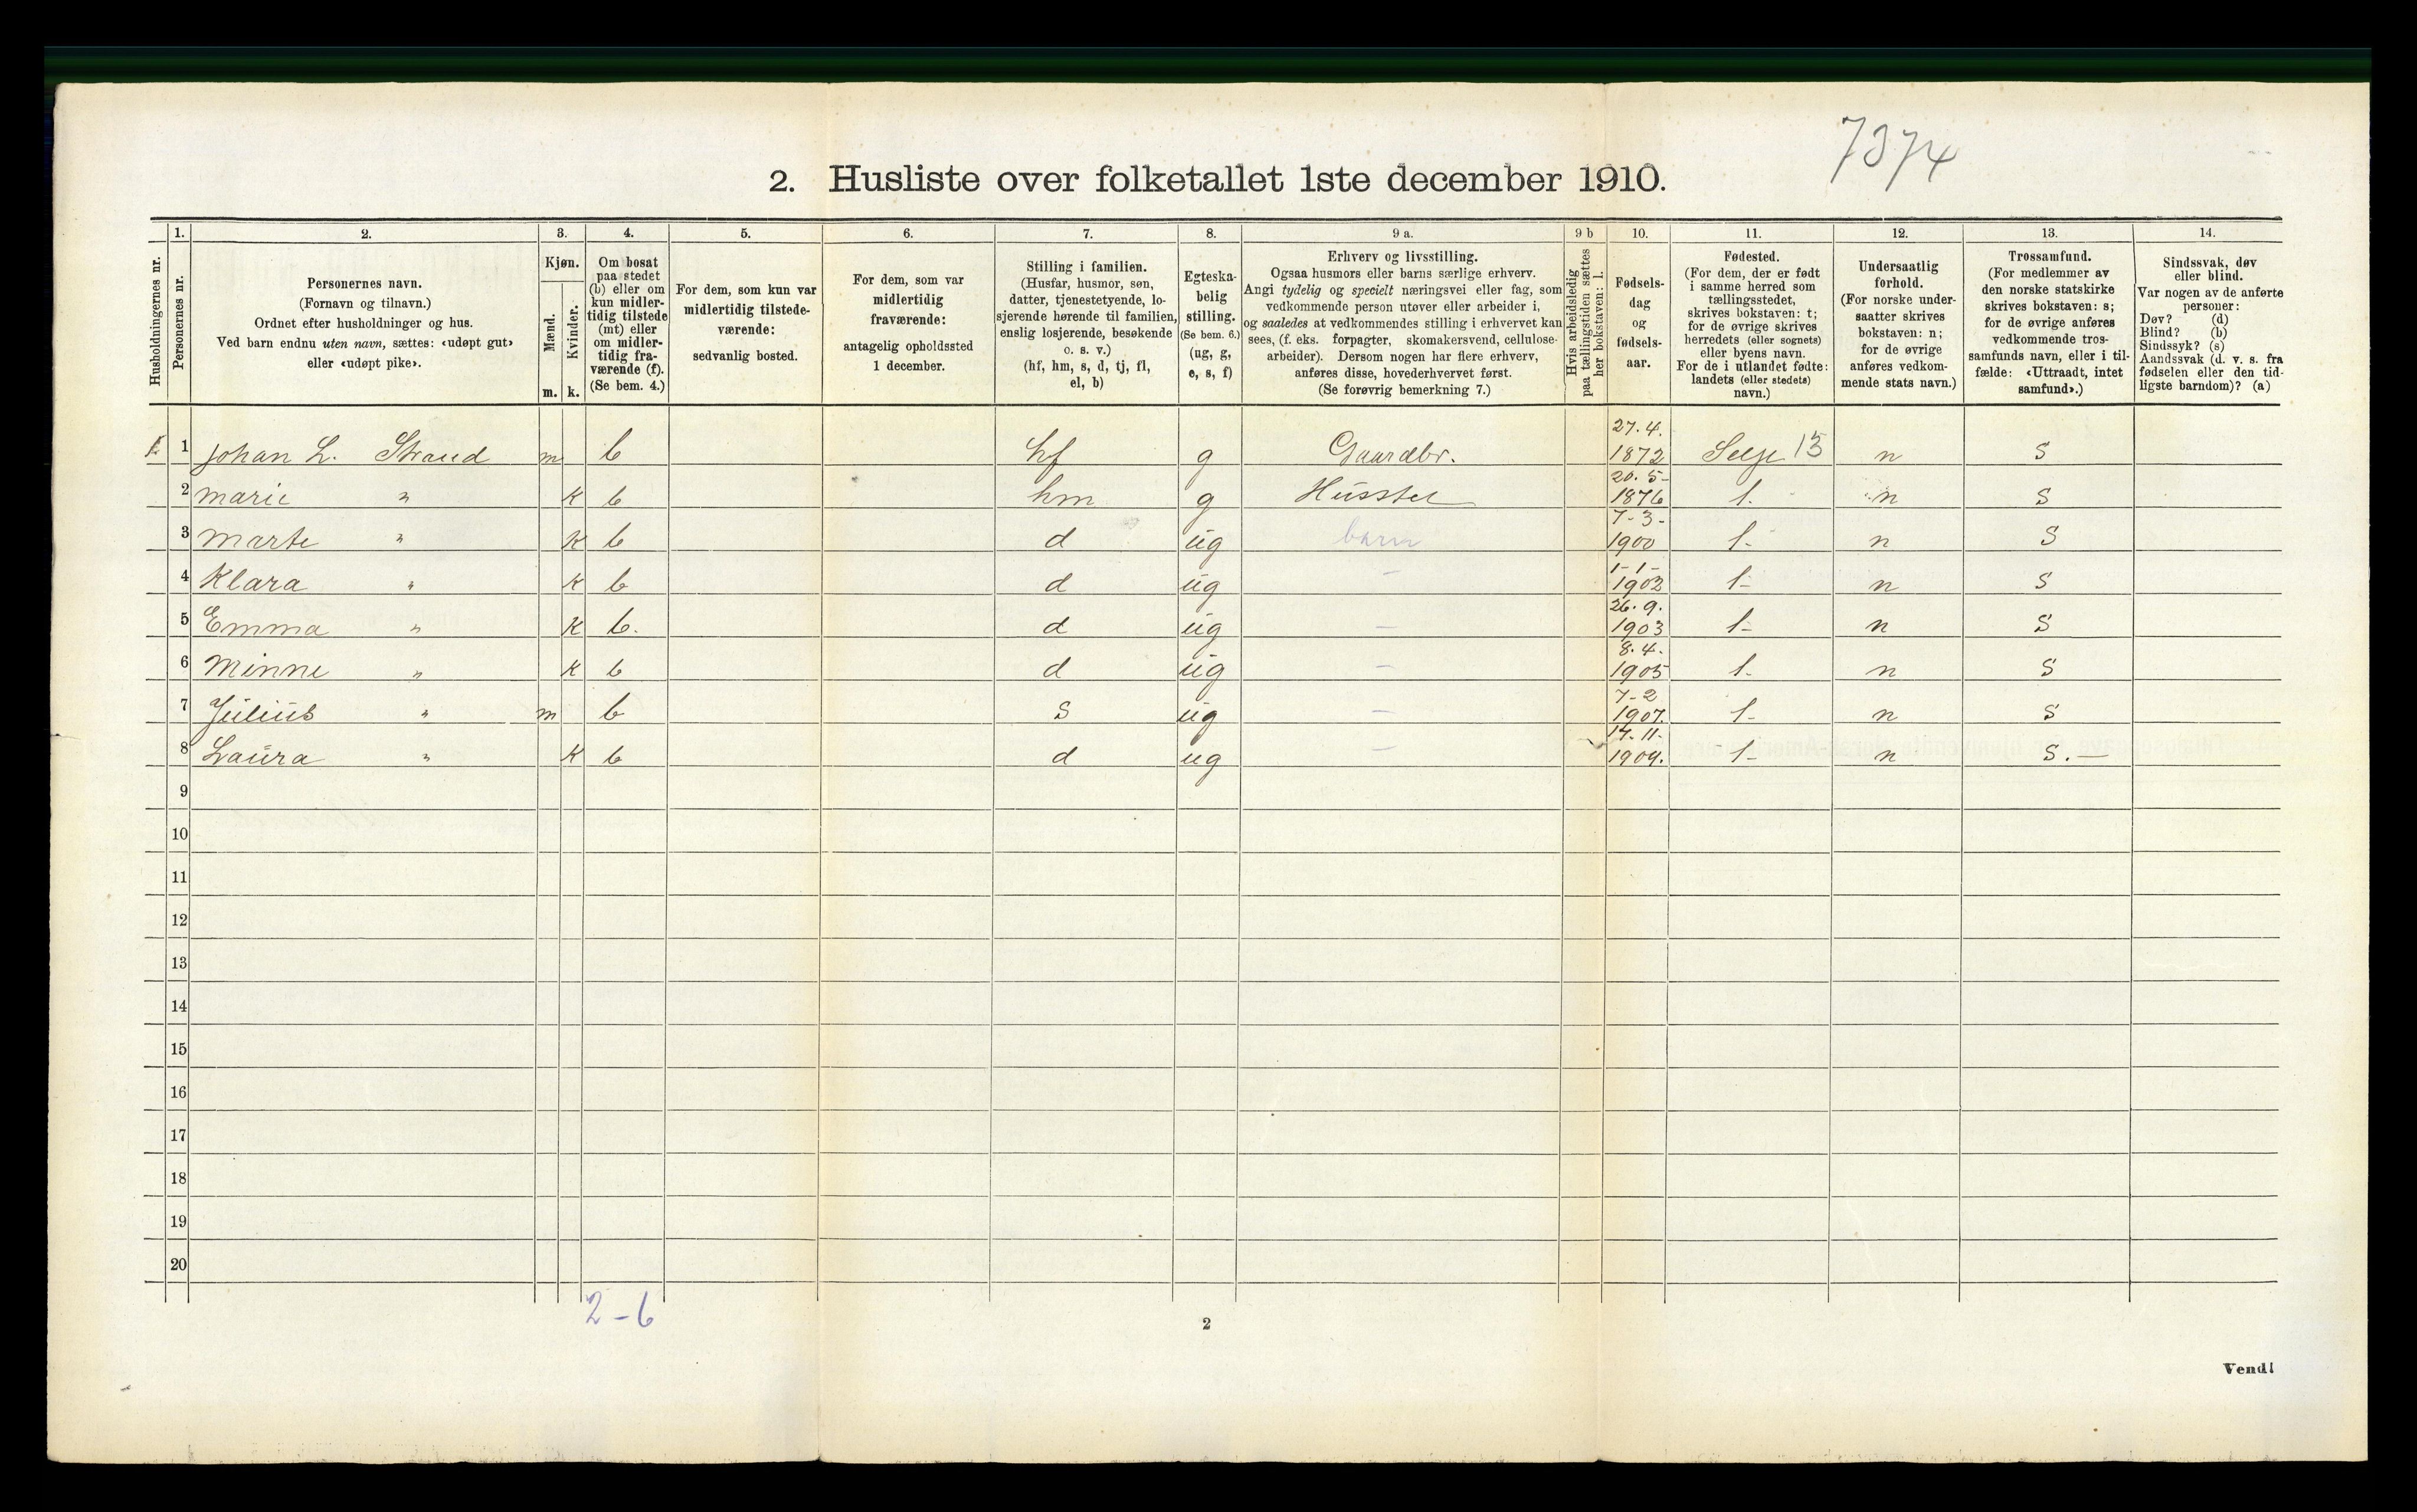 7374
2. Husliste over folketallet 1ste december 1910.
1. 2. 3. 4. 5. 6. 7. 8. 9 a. 9 b 10. 11. 12. 13. 14.
Husholdningernes nr.
Personernes nr.
Personernes navn.
(Fornavn og tilnavn.)
Ordnet efter husholdninger og hus.
Ved barn endnu uten navn, sættes: «udøpt gut»
eller «udøpt pike».
Kjøn.
Mænd.
Kvinder.
m. k.
Om bosat
paa stedet
(b) eller om
kun midler-
tidig tilstede
(mt) eller
om midler-
tidig fra-
værende (f).
(Se bem. 4.)
For dem, som kun var
midlertidig tilstede-
værende:
sedvanlig bosted.
For dem, som var
midlertidig
fraværende:
antagelig opholdssted
1 december.
Stilling i familien.
(Husfar, husmor, søn,
datter, tjenestetyende, lo-
sjerende hørende til familien,
enslig losjerende, besøkende
o. s. v.)
(hf, hm, s, d, tj, fl,
el, b)
Egteska-
belig
stilling.
(Se bem. 6.)
(ug, g,
e, s, f)
Erhverv og livsstilling.
Ogsaa husmors eller barns særlige erhverv.
Angi tydelig og specielt næringsvei eller fag, som
vedkommende person utøver eller arbeider i,
og saaledes at vedkommendes stilling i erhvervet kan
sees, (f. eks. forpagter, skomakersvend, cellulose-
arbeider). Dersom nogen har flere erhverv,
anføres disse, hovederhvervet først.
(Se forøvrig bemerkning 7.)
Hvis arbeidsledig
paa tællingstiden sættes
her bokstaven: l.
Fødsels-
dag
og
fødsels-
aar.
Fødested.
(For dem, der er født
i samme herred som
tællingsstedet,
skrives bokstaven: t;
for de øvrige skrives
herredets (eller sognets)
eller byens navn.
For de i utlandet fødte:
landets (eller stedets)
navn.)
Undersaatlig
forhold.
(For norske under-
saatter skrives
bokstaven: n;
for de øvrige
anføres vedkom-
mende stats navn.)
Trossamfund.
(For medlemmer av
den norske statskirke
skrives bokstaven: s;
for de øvrige anføres
vedkommende tros-
samfunds navn, eller i til-
fælde: «Uttraadt, intet
samfund».)
Sindssvak, døv
eller blind.
Var nogen av de anførte
personer:
Døv? (d)
Blind? (b)
Sindssyk? (s)
Aandssvak (d. v. s. fra
fødselen eller den tid-
ligste barndom)? (a)
1 Johan L. Strand m b hf g Gaardbr. 27.4. 1872 Selje 13 n S
2 Marie " K b hm g Husstel 20.5- 1876 1. n S
3 Marte " K b d ug barn 7-3- 1900 1- n S
4 Klara " K b d ug - 1-1- 1902 1- n S
5 Emma " K b. d ug - 26.9. 1903 1- n S
6 Minne " K b d ug - 8.4. 1905 1- n S
7 Julius " m b S ug - 7-2 1907. 1- n S
8 Laura " K b d ug - 14.11- 1909. 1- n S.-
9
10
11
12
13
14
15
16
17
18
19
20
2-6
2
Vend!